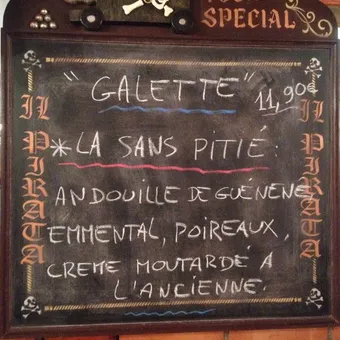 SPECIAL
"GALETTE" 11,90€
*LA SANS PITIÉ:
ANDOUILLE DE GUÉNENE
EMMENTAL, POIREAUX,
CREME MOUTARDE A
L'ANCIENNE.
IL PIRATA
IL PIRATA